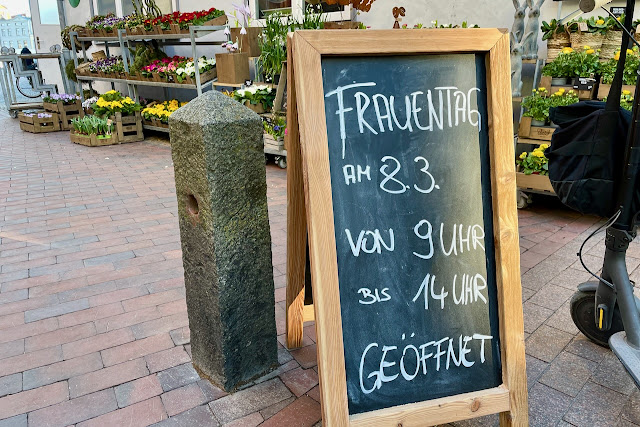 FRAUENTAG
AM 8.3.
VON 9 UHR
BIS 14 UHR
GEÖFFNET